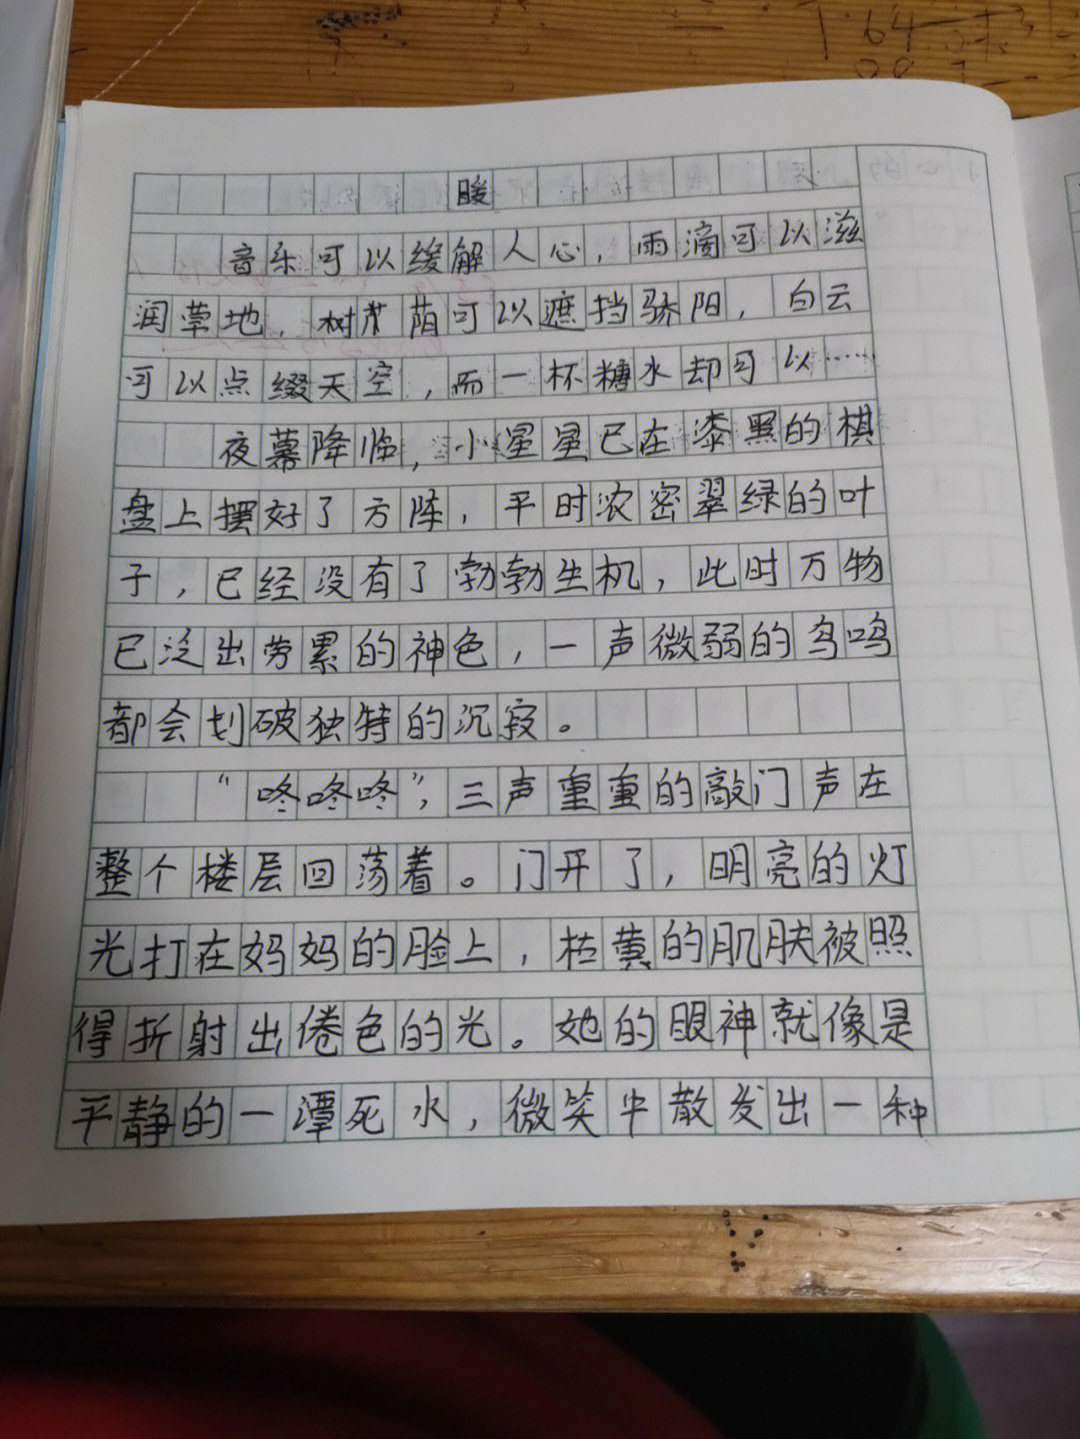 暖
音乐可以缓解人心，雨滴可以滋
润草地，树荫可以遮挡骄阳，白云
可以点缀天空，而一杯糖水却可以……
夜幕降临，小星星已在漆黑的棋
盘上摆好了方阵，平时浓密翠绿的叶
子，已经没有了勃勃生机，此时万物
已泛出劳累的神色，一声微弱的鸟鸣
都会划破独特的沉寂。
“咚咚咚”，三声重重的敲门声在
整个楼层回荡着。门开了，明亮的灯
光打在妈妈的脸上，枯黄的肌肤被照
得折射出倦色的光。她的眼神就像是
平静的一潭死水，微笑中散发出一种